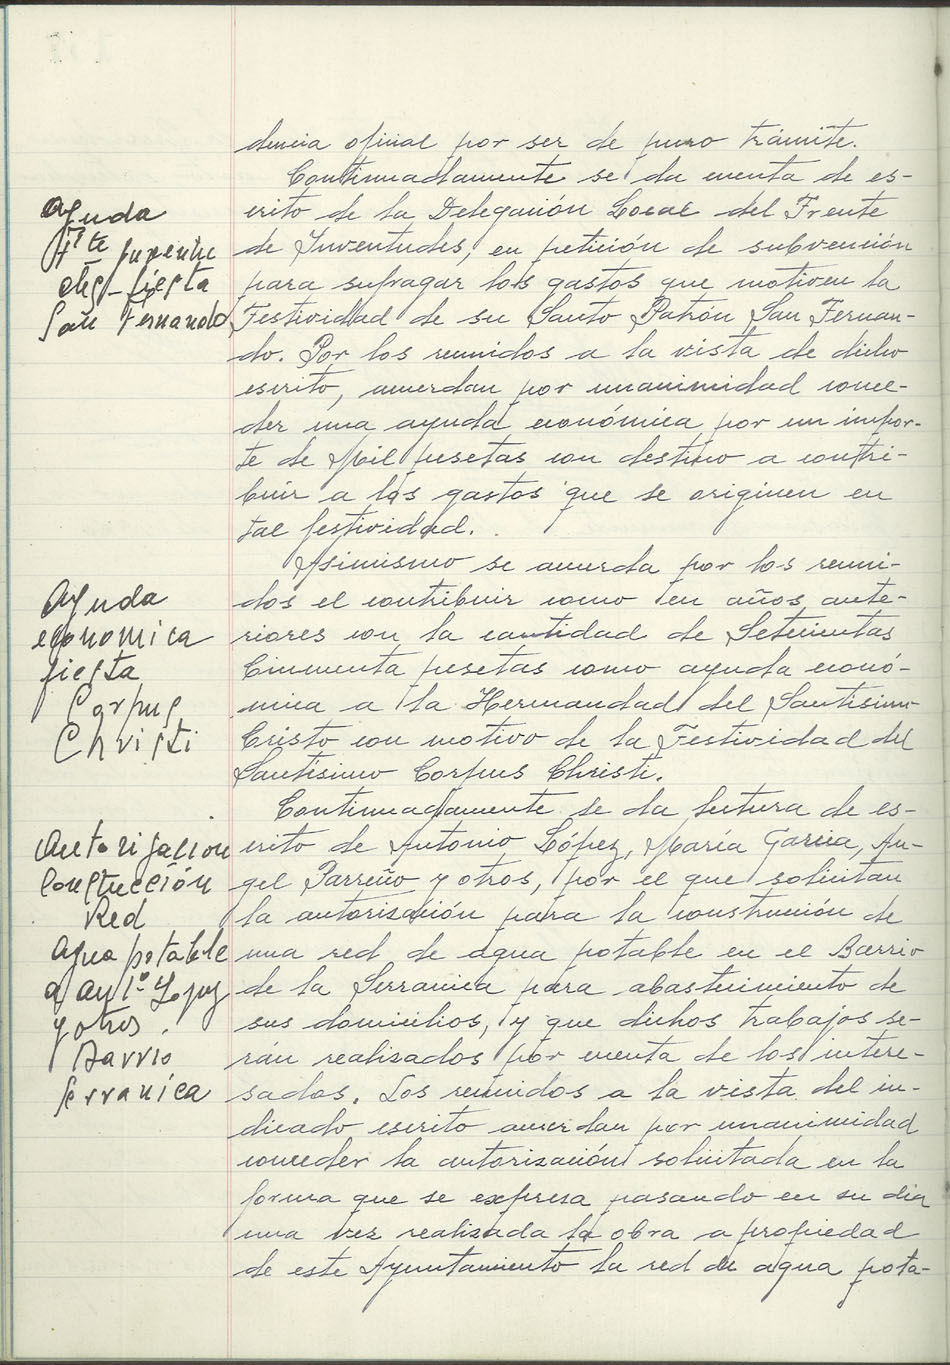 dencia oficial por ser de puro trámite.
Continuadamente se da cuenta de es-
crito de la Delegación Local del Frente
de Juventudes, en petición de subvención
para sufragar los gastos que motiven la
Festividad de su Santo Patrón San Fernan-
do. Por los reunidos a la vista de dicho
escrito, acuerdan por unanimidad conce-
der una ayuda económica por un impor-
te de Mil pesetas con destino a contri-
buir a los gastos que se originen en
tal festividad.
Asimismo se acuerda por los reuni-
dos el contribuir como en años ante-
riores con la cantidad de Setecientas
Cincuenta pesetas como ayuda econó-
mica a la Hermandad del Santísimo
Cristo con motivo de la Festividad del
Santísimo Corpus Christi.
Continuadamente se da lectura de es-
crito de Antonio López, María García, An-
gel Parreño y otros, por el que solicitan
la autorización para la construcción de
una red de agua potable en el Barrio
de la Serranica para abastecimiento de
sus domicilios, y que dichos trabajos se-
rán realizados por cuenta de los intere-
sados. Los reunidos a la vista del in-
dicado escrito acuerdan por unanimidad
conceder la autorización solicitada en la
forma que se expresa pasando en su día
una vez realizada la obra a propiedad
de este Ayuntamiento la red de agua pota-
Ayuda
Fte
fiesta
San Fernando
Ayuda
economica
fiesta
Corpus
Christi
Autorizacion
Construcción
Red
Agua potable
a Antº Lopez
y otros.
Barrio
Serranica